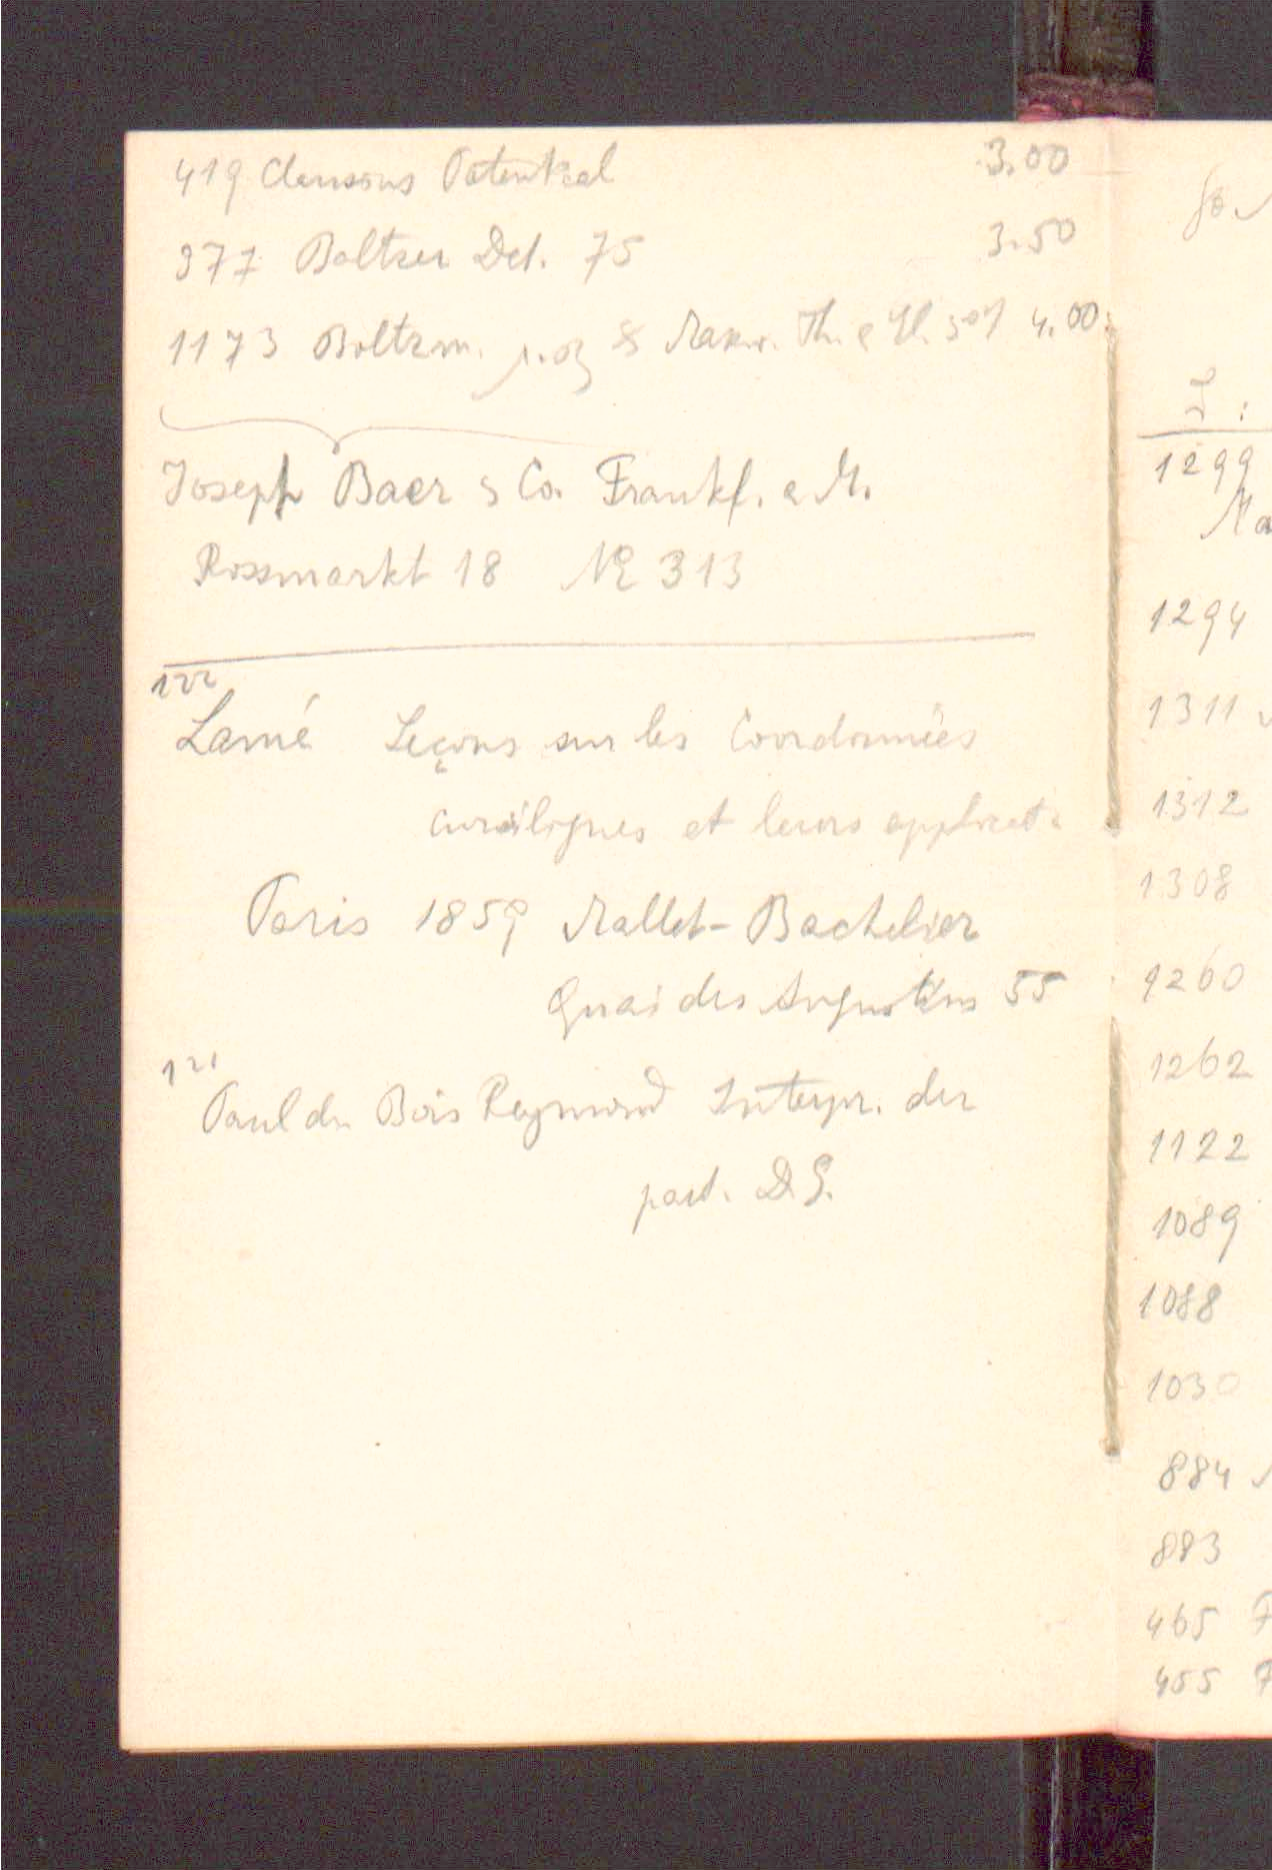 419 Clausius Potential 3.00
377 Baltzer Det. 75 3.50
1173 Boltzm. Th. 4.00
Joseph Baer & Co. Frankf. a M.
Rossmarkt 18 No 313
122
Lamé Leçons sur les Coordonnées
curvilignes et leurs applicat.
Paris 1859 Mallet-Bachelier
Quai des Augustins 55
121
Paul du Bois Reymond Interpr. der
part. D.G.
1299
Ma
1294
1311
1312
1308
1260
1262
1122
1089
1088
1030
884
883
465 F
455 F